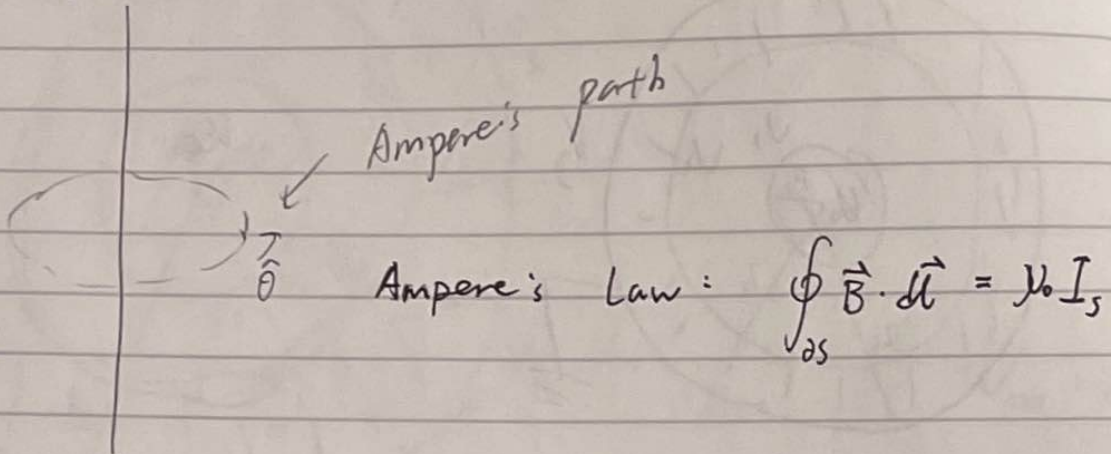 Ampere's path
θ̂
Ampere's Law: ∮_∂S B⃗ · dl⃗ = μ₀ I_s